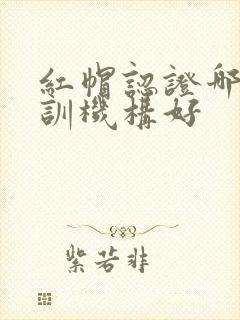 紅帽認證哪
訓機構好
紫若非